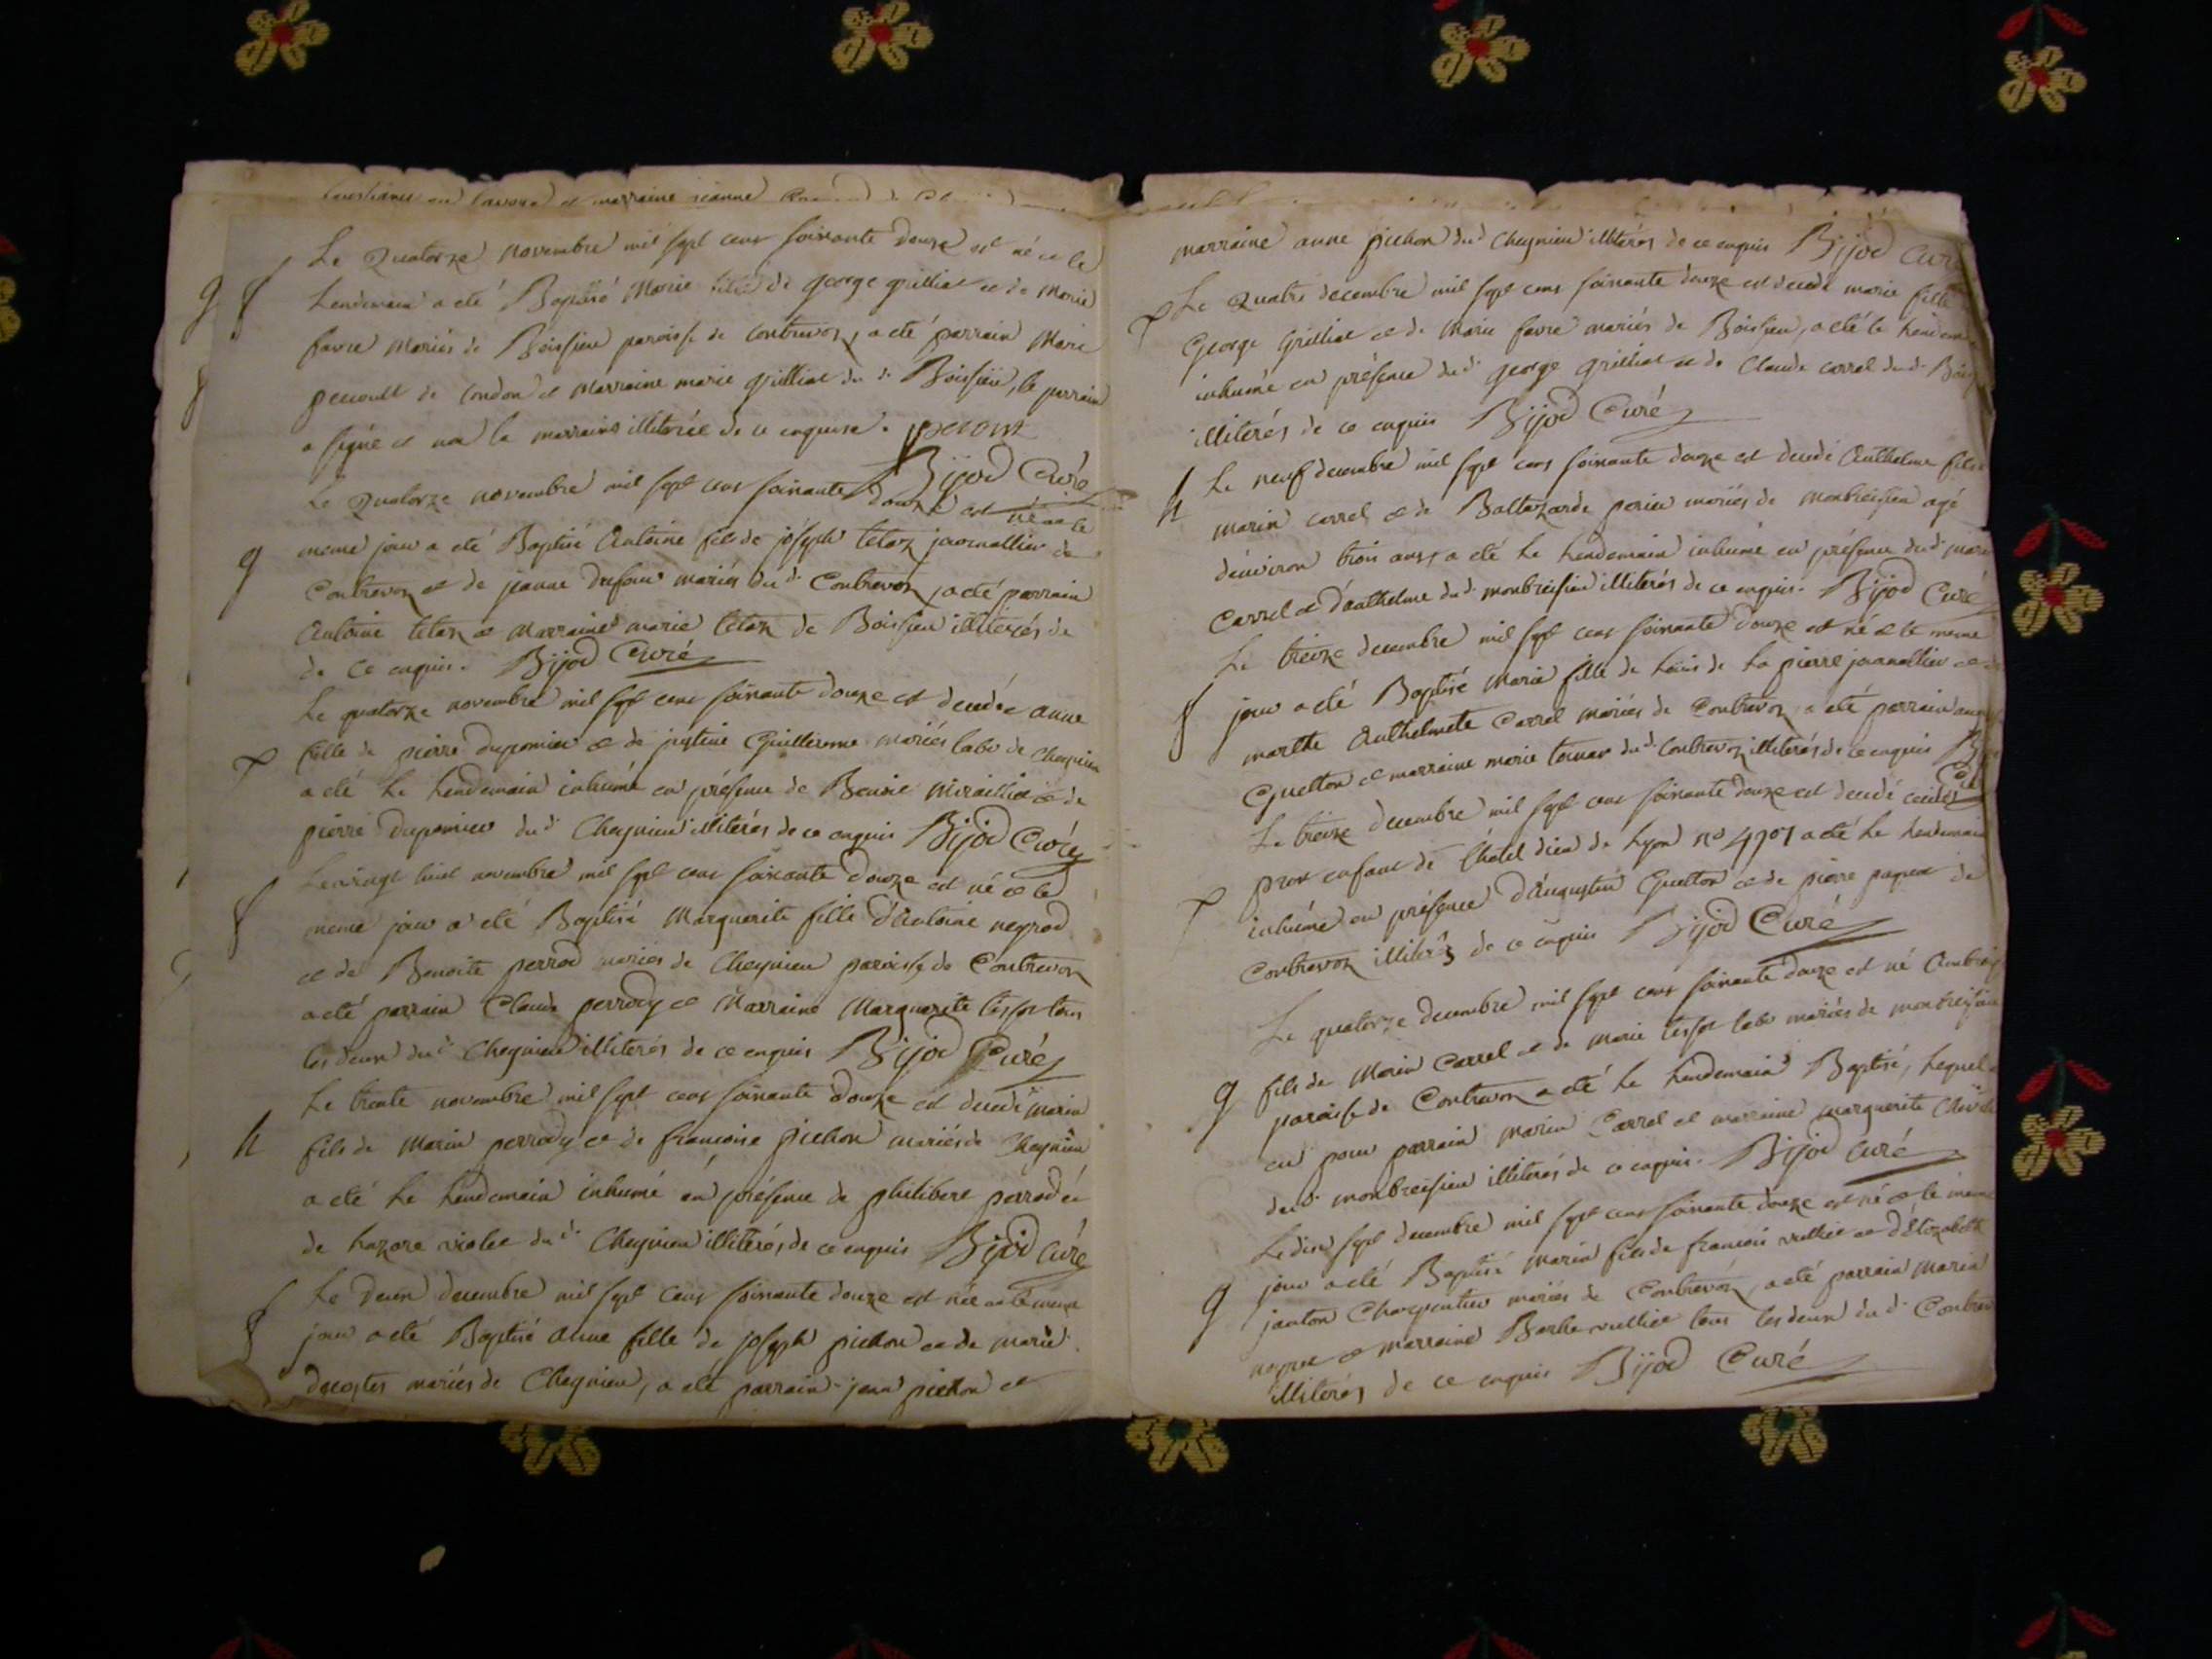 et marraine jeanne
Le Quatorze novembre mil sept cens soixante douze est né et le
g f
Lendemain a eté Baptisé Marie fille de george grilliat et de Marie
favre Mariés de Boissieu paroisse de Contrevoz, a eté parrain Marc
f
de Condon et Marraine marie grilliat du d. Boissieu, le parrain
a signé et non la marraine illiterée de ce enquise.
Bijod Curé
Le Quatorze novembre mil sept cens soixante douze est né et le
g
meme jour a eté Baptisé Antoine fils de joseph tetaz journallier de
Contrevoz et de jeanne dufour mariés du d. Contrevoz, a eté parrain
Antoine tetaz et Marraine marie tetaz de Boissieu illiterés de
de ce enquis. Bijod Curé
Le quatorze novembre mil sept cens soixante douze est decedée anne
fille de pierre duponieu et de justine Guillierme mariés labr de Cheynieu
a eté le Lendemain inhumé en présence de et de
pierre duponieu du d. Cheynieu illiterés de ce enquis Bijod Curé
Le vingt huit novembre mil sept cens soixante douze est né et le
f
meme jour a eté Baptisé Marguerite fille d'Antoine negrod
et de Benoite perrod mariés de Cheynieu paroisse de Contrevoz
a eté parrain Claude perrody et Marraine Marguerite tissot tous
les deux du d. Cheynieu illiterés de ce enquis Bijod Curé
Le trente novembre mil sept cens soixante douze est decedé marin
h
fils de Marin perrody et de francoise pichon mariés de Cheynieu
a eté le Lendemain inhumé en présence de philibert perrod et
de Lazare violet du d. Cheynieu illiterés de ce enquis Bijod Curé
Le deux decembre mil sept cens soixante douze est née et le meme
f
jour a eté Baptisé anne fille de joseph pichon et de marie
decostes mariés de Cheynieu, a eté parrain jean pichon et
marraine anne pichon du d. Cheynieu illiterés de ce enquis Bijod Curé
Le Quatre decembre mil sept cens soixante douze est decedé marie fille
George Grilliat et de Marie favre mariés de Boissieu, a eté le
inhumé en présence du d. george grilliat et de Claude carrel du d.
illiterés de ce enquis Bijod Curé
Le neuf decembre mil sept cens soixante douze est decedé Anthelme fils
h
marin carrel et de Baltazarde mariés de montbreisieu agé
d'environ trois ans, a eté le Lendemain inhumé en présence du d.
Carrel et d'anthelme du d. montbreisieu illiterés de ce enquis. Bijod Curé
Le treize decembre mil sept cens soixante douze est né et le meme
f
jour a eté Baptisé Marie fille de Louis de la pierre journallier et de
marthe Anthelmete Carrel mariés de Contrevoz a eté parrain
Guetton et marraine marie du d. Contrevoz illiterés de ce enquis
Le treize decembre mil sept cens soixante douze est decedé
enfant de l'hotel dieu de Lyon n° a eté le Lendemain
inhumé en présence d'Augustin Guetton et de pierre de
Contrevoz illiterés de ce enquis Bijod Curé
Le quatorze decembre mil sept cens soixante douze est né
g
fils de Marin Carrel et de Marie tissot labr mariés de
paroisse de Contrevoz a eté le Lendemain Baptisé, Lequel a
eu pour parrain Marin Carrel et marraine marguerite
du d. montbreisieu illiterés de ce enquis. Bijod curé
Le dix sept decembre mil sept cens soixante douze est né et le meme
g
jour a eté Baptisé Marin fils de francois vulliet et d'Elizabeth
janton Charpentier mariés de Contrevoz, a eté parrain Marin
et marraine Barbe vulliet tous les deux du d.
illiterés de ce enquis Bijod Curé